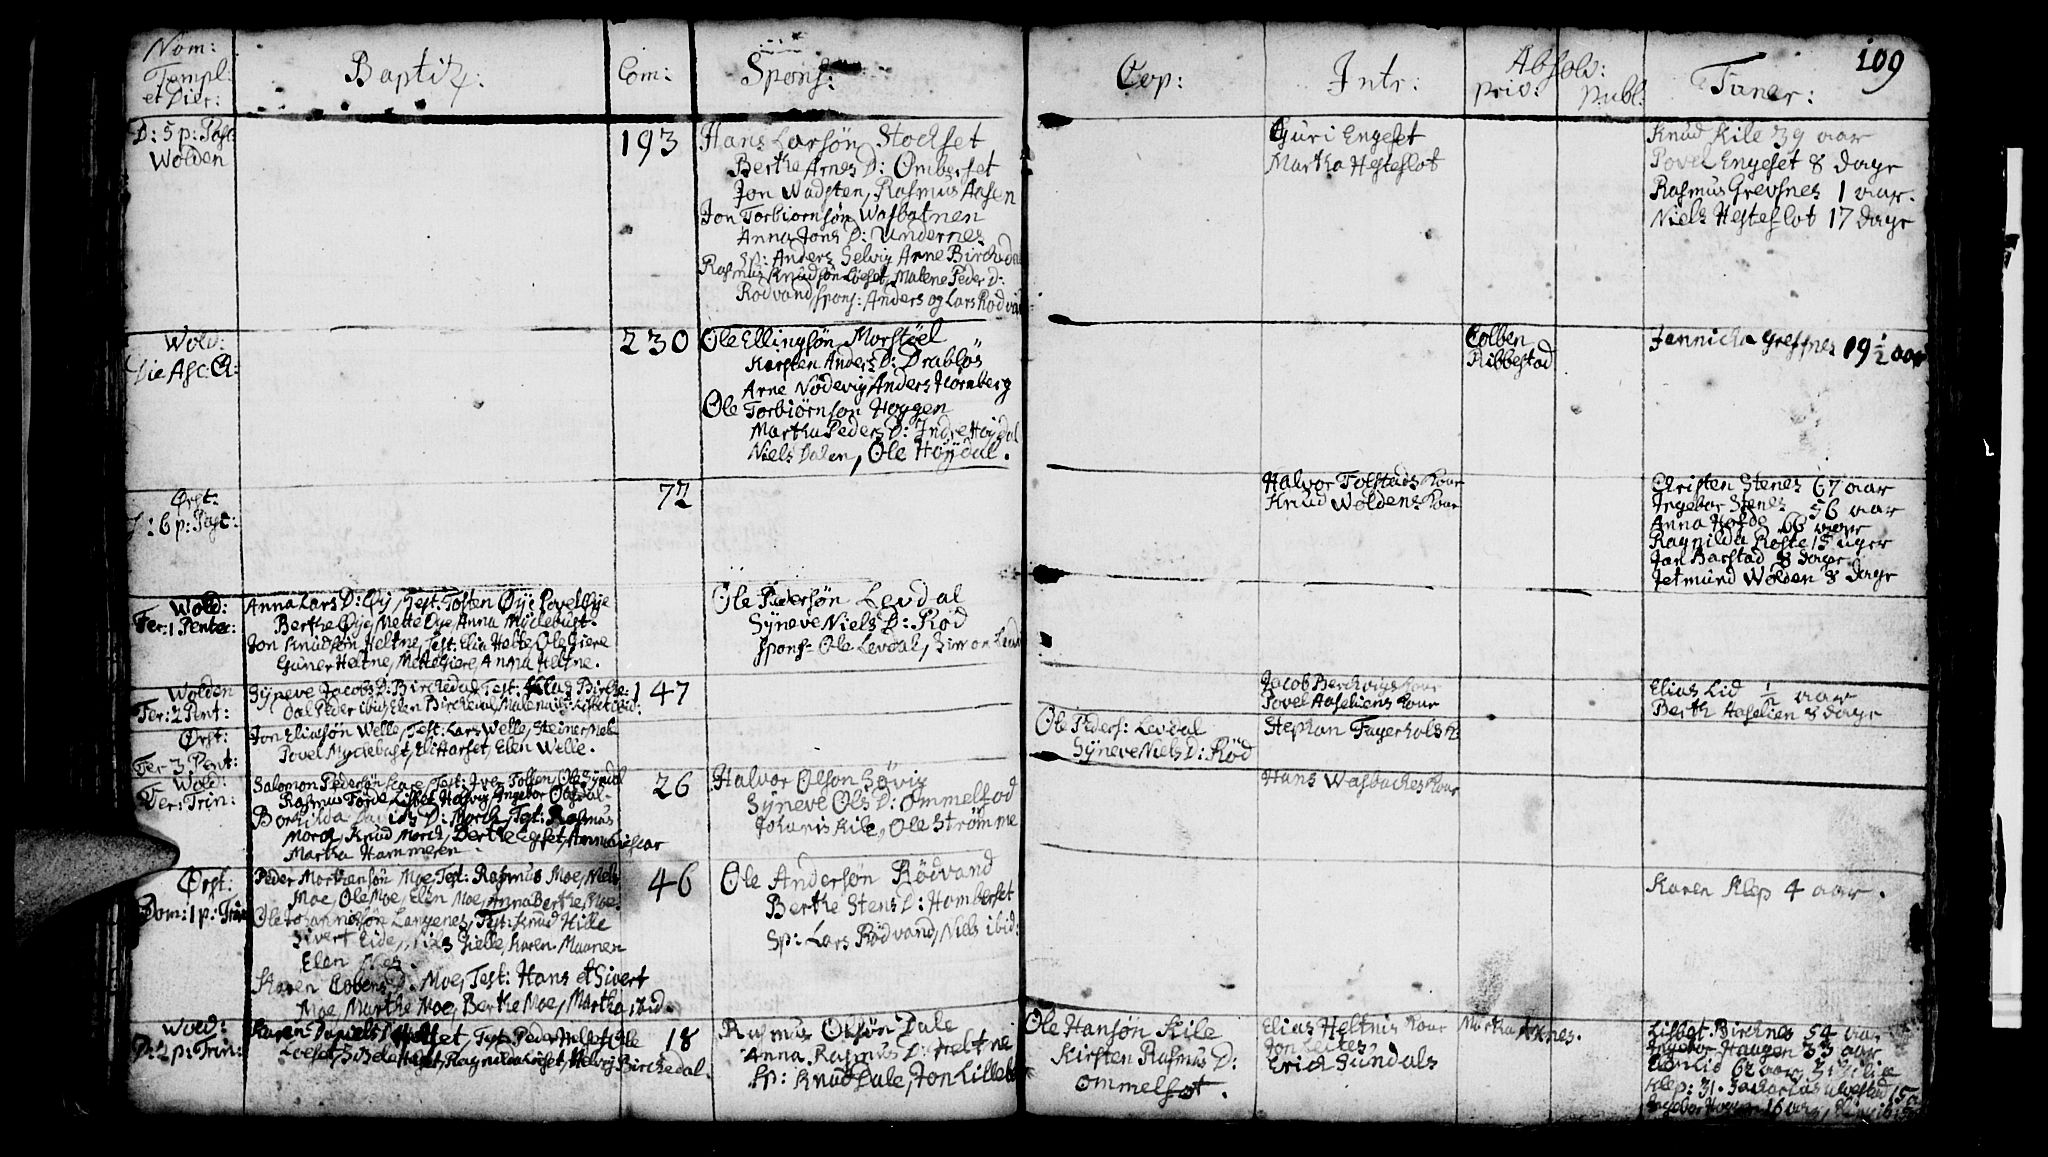 Nom:
Templ:
et Dier:
Baptiz:
Com:
Spons:
Cop:
Intr:
Absolv:
priv: publ:
Funer:
109
D: 5 p: Pasc:
Wolden
193
Hans Larsøn Stochset
Berthe Arnes D: Omberset
Jon Wadsten, Rasmus Aasen
Jon Torbiørnsøn Wasbotnen
Anna Jons D: Undernes
Sp: Anders Selvig Arne Birchedal
Rasmus Knudsøn Løeset, Malene Peder D:
Rødvand, Spons: Anders og Lars Rødvand
Guri Engeset
Martha Hesteflot
Knud Kile 39 aar
Povel Engeset 8 dage
Rasmus Grevsnes 1 aar.
Niels Hesteflot 17 dage
Wold:
Die Asc: Chr:
230
Ole Ellingsøn Morstøel
Kersten Anders D: Drabløs
Arne Nødevig Anders Hornberg
Ole Torbiørnsøn Hoggen
Martha Peders D: Indre Høydal
Niels Dalen, Ole Høydal.
Colben
Ribbestad
Jannicha Grefsnes 19 1/2 aar
Ørst:
D: 6 p: Pasc:
72
Halvor Folstads Kone
Knud Woldens Kone
Christen Stenes 67 aar
Ingebor Stenes 56 aar
Anna Hofde 66 aar
Ragnilda Roste 15 uger
Jon Barstad 8 dager
Jetmund Wolden 8 dage
Wold:
Fer: 1 Pentec:
Anna Lars D: Øy, Test: Tosten Øye Povel Øye
Berthe Øye, Mette Øye, Anna Myclebust.
Jon Knudsøn Heltne, Test: Elia Helte, Ole Giere
Guner Heltne, Mette Giere, Anna Heltne.
Ole Pedersøn Levdal
Syneve Niels D: Rød
Spons: Ole Levdal, Simon Levdal
Wolden
Fer: 2 Pent:
Syneve Jacobs D: Birchedal, Test: Klas Birche:
dal Peder ibid, Elen Birchedal, Malena ibid, Lisbet ibid:
147
Jacob Berchvigs Kone
Povel Aaseliens Kone
Elias Lid 1/2 aar
Berth Aaselien 8 dage
Ørst:
Fer 3 Pent:
Jon Eliasøn Welle, Test: Lars Welle, Steiner ibid
Povel Myclebust, Eli Harset, Elen Welle.
Ole Peders: Levdal
Syneve Niels D: Rød
Stephan Fagerhols K:
Wold:
Fer: Trin:
Salomon Pedersøn Kare, Test: Iver Follen, Ole Syndal
Rasmus Førde, Lisbet Helsvig, Ingebor Opdal.
Borhilda Davids D: Morch, Test: Rasmus
Morch, Knud Morch, Berthe Egset, Anna
Martha Hammeren.
26
Halvor Olson Søvig
Syneve Ols D: Ommelsod
Johanis Kile, Ole Strømme
Hans Wasbackes Kone
Ørst:
Dom: 1 p: Trin
Peder Mortensøn Moe, Test: Rasmus Moe, Niels
Moe, Ole Moe, Elen Moe, Anna Berthe Moe.
Ole Johannessøn Langenes, Test: Knud Hille
Sivert Eide, Nils Gielle, Karen Maanen
Elen Nes.
Karen Cobens D: Moe, Test: Hans et Sivert
Moe, Marthe Moe, Berthe Moe, Martha ibid.
46
Ole Andersøn Rødvand
Berthe Stens D: Homberset
Sp: Lars Rødvand, Niels ibid:
Karen Klep 4 aar.
Wold:
D: 2 p: Trin:
Karen Daniels D Holset, Test: Peder Holset, Ole
Løeset, Sibela Holset, Ragnilda Løeset, Helvig Birchedal.
18
Rasmus Olsøn Dale
Anna Rasmus D: Heltne
Sp: Knud Dale, Jon Lillebø
Ole Hansøn Kile
Kirsten Rasmus D:
Ommelsot.
Elias Heltnis Kone
Jon Leites
Erich Sundals
Martha Axnes.
Lisbet Birchnes 54 aar
Ingebor Haugen 33 aar
Elen Lid 62 aar,
Klep: 31. Jacharias
Ingebor Hogen 16 aar,